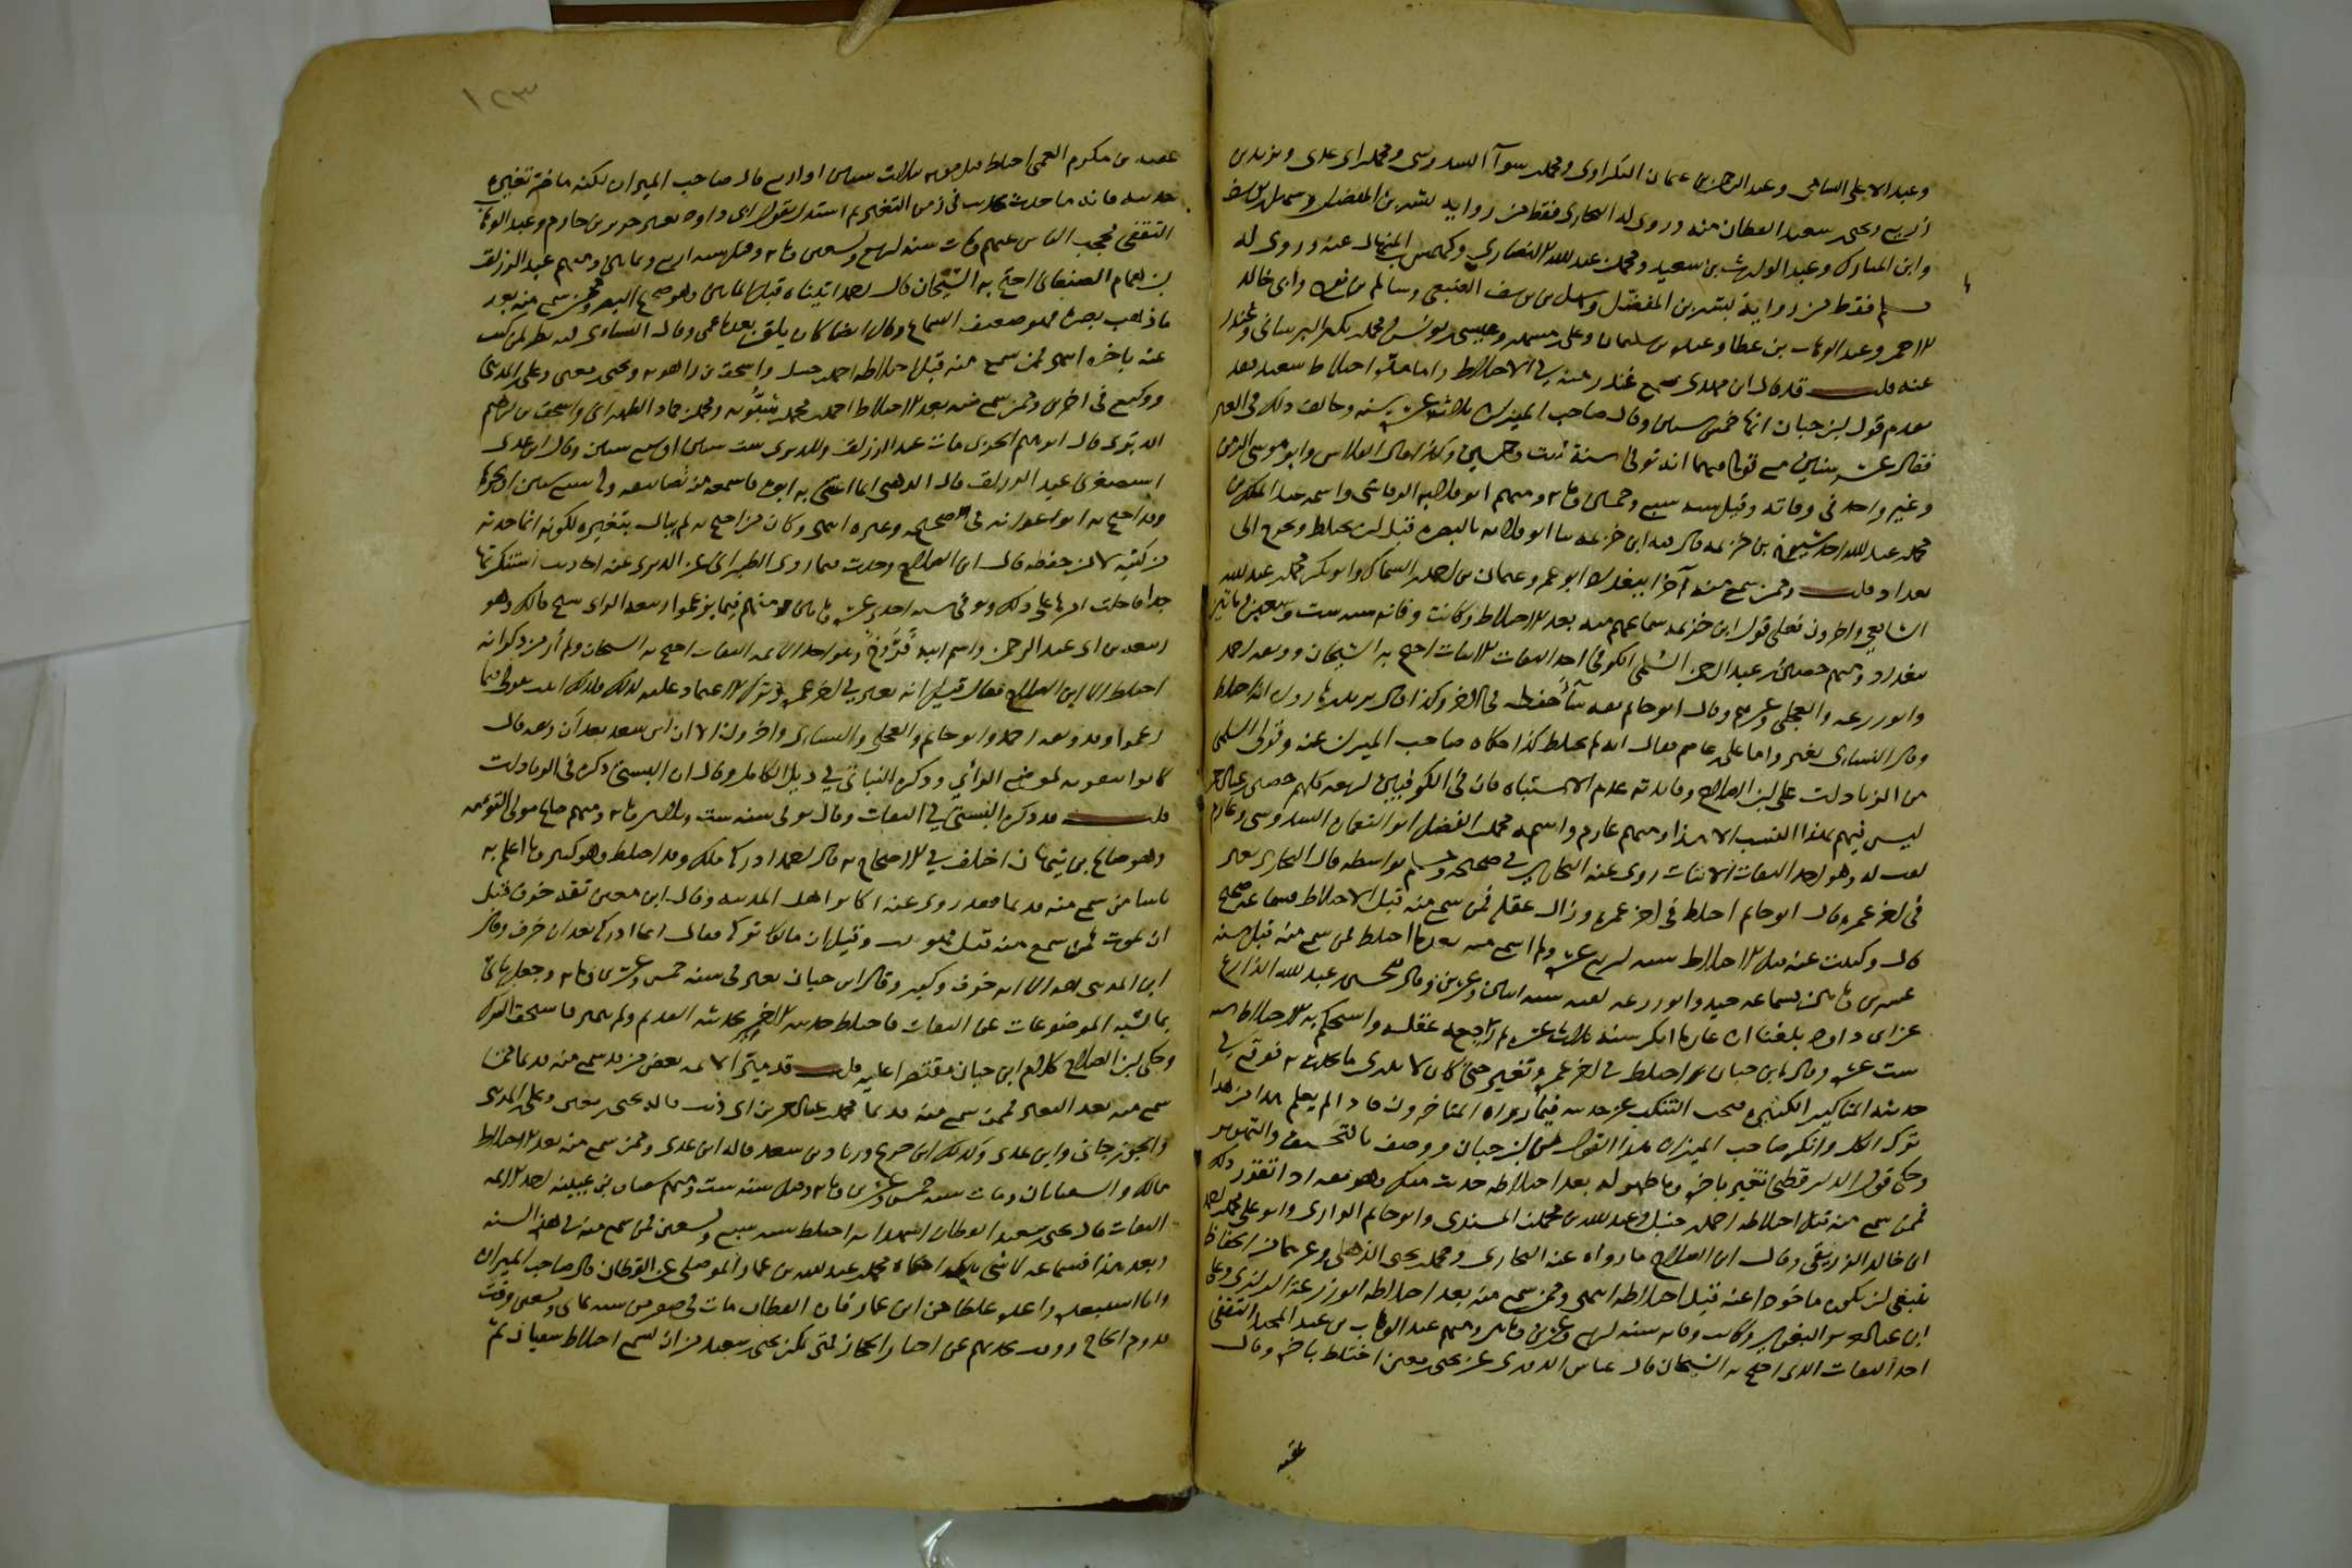 وعبد الاعلى السامي وعبد الرحمن بن عثمان البكراوي ومحمد بن سوآا السدوسي ومحمد بن ابي عدي ويزيد بن
زريع ويحيى بن سعيد القطان منه وروى له البخاري فقط من رواية بشر بن المفضل وسهل بن يوسف
وابن المبارك وعبد الوارث بن سعيد ومحمد بن عبد الله الانصاري وكهمس بن المنهال عنه وروى له
مسلم فقط من رواية بشر بن المفضل وسهل بن يوسف الضبعي وسالم بن نوح وابي خالد
الاحمر وعبد الوهاب بن عطا وعبدة بن سليمان وعلي بن مسهر وعيسى بن يونس ومحمد بن بكر البرساني وغندر
عنه قلت قد قال ابن مهدي سمع غندر منه في الاختلاط واما مدة اختلاط سعيد فقد
تقدم قول ابن حبان انها خمس سنين وقال صاحب الميزان ثلاث عشرة سنة وخالف ذلك في العبر
فقال عشر سنين مع قوله فيهما انه توفي سنة ست وخمسين وكذا قال الفلاس وابو موسى الزمن
وغير واحد في وفاته وقيل سنة سبع وخمسين وماية ومنهم ابو قلابة الرقاشي واسمه عبد الملك بن
محمد بن عبد الله احد شيوخ ابن خزيمة قال فيه ابن خزيمة ثنا ابو قلابة بالبصرة قبل ان يختلط ويخرج الى
بغداد قلت وممن سمع منه آخرا ببغداد ابو عمرو عثمان بن احمد السماك وابو بكر محمد بن عبد الله
الشافعي واخرون فعلى قول ابن خزيمة سماعهم منه بعد الاختلاط وكانت وفاته سنة ست وسبعين وماتين
ببغداد ومنهم حصين بن عبد الرحمن السلمي الكوفي احد الثقات الاثبات احتج به الشيخان ووثقه احمد
وابو زرعة والعجلي وغيرهم وقال ابو حاتم ثقة سآء حفظه في الاخر وكذا قال يزيد بن هارون انه اختلط
وقال النسائي تغير واما علي بن عاصم فقال انه لم يختلط كذا حكاه صاحب الميزان عنه وقولي السلمي
من الزيادات على ابن الصلاح وفائدته عدم الاشتباه فان في الكوفيين اربعة كلهم حصين بن عبد الرحمن
ليس فيهم بهذا النسب الا هذا ومنهم عارم واسمه محمد بن الفضل ابو النعمان السدوسي وعارم
لقب له وهو احد الثقات الاثبات روى عنه البخاري في صحيحه ومسلم بواسطة قال البخاري تغير
في اخر عمره قال ابو حاتم اختلط في اخر عمره وزال عقله فمن سمع منه قبل الاختلاط فسماعه صحيح
قال وكتبت عنه قبل الاختلاط سنة اربع عشرة ولم اسمع منه بعدما اختلط فمن سمع منه قبل سنة
عشرين وماتين فسماعه جيد وابو زرعة لقيه سنة اثنين وعشرين وقال الحسين بن عبد الله الذارع
عن ابي داود بلغنا ان عارما انكر سنة ثلاث عشرة ثم راجعه عقله واستحكم به الاختلاط سنة
ست عشرة وقال ابن حبان اختلط في اخر عمره وتغير حتى كان لا يدري ما يحدث به فوقع في
حديثه المناكير الكثيرة فيجب التنكب عن حديثه فيما رواه المتاخرون فاذا لم يعلم هذا من هذا
ترك الكل وانكر صاحب الميزان هذا القول من ابن حبان ووصفه بالتخسيف والتهوير
وحكى قول الدارقطني تغير باخرة وما ظهر له بعد اختلاطه حديث منكر وهو ثقة اذا تقرر ذلك
فممن سمع منه قبل اختلاطه احمد بن حنبل وعبد الله بن محمد المسندي وابو حاتم الرازي وابو علي محمد بن احمد
ابن خالد الزريقي وقال ابن الصلاح ما رواه عنه البخاري ومحمد بن يحيى الذهلي وغيرهما من الحفاظ
ينبغي ان يكون ماخوذا عنه قبل اختلاطه انتهى وممن سمع منه بعد اختلاطه ابو زرعة الرازي وعلي
ابن عبد العزيز البغوي وكانت وفاته سنة اربع وعشرين وماتين ومنهم عبد الوهاب بن عبد المجيد الثقفي
احد الثقات الذي احتج به الشيخان قال عباس الدوري عن يحيى بن معين اختلط باخرة وقال
عقبة
١٢٣
عقبة بن مكرم العمي اختلط قبل موته بثلاث سنين او اربع قال صاحب الميزان لكنه ما ضر تغيره
حديثه فانه ما حدث بحديث في زمن التغير ثم استدل بقول ابي داود تغير جرير بن حازم وعبد الوهاب
الثقفي فحجب الناس عنهم وكانت سنة اربع وتسعين وماية وقيل سنة اربع وثمانين ومنهم عبد الرزاق
بن همام الصنعاني احتج به الشيخان قال احمد اتيناه قبل الماتين وهو صحيح البصر ومن سمع منه بعد
ما ذهب بصره فهو ضعيف السماع وقال ايضا كان يلقن بعد ما عمي وقال النسائي فيه نظر لمن كتب
عنه باخره انتهى فمن سمع منه قبل اختلاطه احمد بن حنبل واسحق بن راهويه ويحيى بن معين وعلي بن المديني
ووكيع في اخرين وممن سمع منه بعد الاختلاط احمد بن محمد بن شبويه ومحمد بن حماد الطهراني واسحق بن ابراهيم
الدبري قال ابراهيم الحربي مات عبد الرزاق وللدبري ست سنين او سبع سنين وقال ابن عدي
استصغر في عبد الرزاق قال الذهبي انما اعتنى به ابوه فاسمعه من تصانيفه وله سبع سنين او نحوها
وقد احتج به ابو عوانة في صحيحه وغيره انتهى وكان من احتج به لم يبال بتغيره لكونه انما حدثه
من كتبه لا من حفظه قال ابن الصلاح وجدت فيما روى الطبراني عن الدبري عنه احاديث استنكرتها
جدا فاحلت امرها على ذلك وتوفي سنة احدى عشرة وماتين ومنهم فيما زعموا ربيعة الراي شيخ مالك وهو
ربيعة بن ابي عبد الرحمن واسم ابيه فروخ وهو احد الائمة الثقات احتج به الشيخان ولم أر من ذكر انه
اختلط الا ابن الصلاح فقال قيل انه تغير في اخر عمره وترك الاعتماد عليه لذلك فلذلك اتيت بقولي فيما
زعموا وقد وثقه احمد وابو حاتم والعجلي والنسائي واخرون الا ان ابن سعد بعد أن وثقه قال
كانوا يتقونه لموضع الرأي وذكره النباتي في ذيل الكامل وقال ان البستي ذكره في الزيادات
قلت قد ذكره البستي في الثقات وقال توفي سنة ست وثلاثين وماية ومنهم صالح مولى التوءمة
وهو صالح بن نبهان اختلف في الاحتجاج به قال احمد ادركه مالك وقد اختلط وهو كبير وما اعلم به
باسا من سمع منه قديما فقد روى عنه اكابر اهل المدينة وقال ابن معين ثقة خرف قبل
ان يموت فمن سمع منه قبل فهو ثبت وقيل ان مالكا تركه فقال انما ادركه بعد ان خرف وقال
ابن المديني ثقة الا انه خرف وكبر وقال ابن حبان تغير في سنة خمس وعشرين وماية وجعل ياتي
بما يشبه الموضوعات عن الثقات فاختلط حديثه الاخير بحديثه القديم ولم يتميز فاستحق الترك
وحكى ابن الصلاح كلام ابن حبان مقتصرا عليه قلت قد ميز الائمة بعض من سمع منه قديما ممن
سمع منه بعد التغير فممن سمع منه قديما محمد بن عبد الرحمن بن ابي ذئب قاله يحيى بن معين وعلي بن المديني
والجوزجاني وابن عدي وكذلك ابن جريج وزياد بن سعد قاله ابن عدي وممن سمع منه بعد الاختلاط
مالك والسفيانان ومات سنة خمس وعشرين وماية وقيل سنة ست ومنهم سفيان بن عيينة احد الائمة
الثقات قال يحيى بن سعيد القطان اشهد انه اختلط سنة سبع وتسعين فمن سمع منه في هذه السنة
وبعد هذا فسماعه لا شى حكاه محمد بن عبد الله بن عمار الموصلي عن القطان قال صاحب الميزان
وانا استبعده واعده غلطا من ابن عمار فان القطان مات في صفر من سنة ثمان وتسعين وقت
قدوم الحاج ووقت تحدثهم عن اخبار الحجاز فمتى تمكن يحيى بن سعيد من ان يسمع اختلاط سفيان ثم